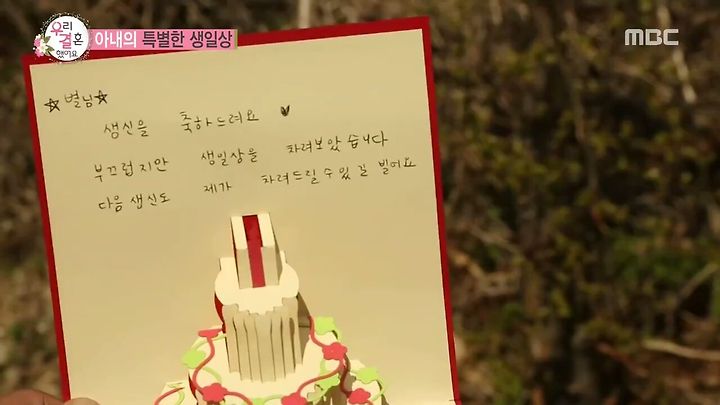 우리
결혼
했어요
아내의 특별한 생일상
MBC
☆별님☆
생신을 축하드려요
부끄럽지만 생일상을 차려보았습니다
다음 생신도 제가 차려드릴 수 있길 빌어요